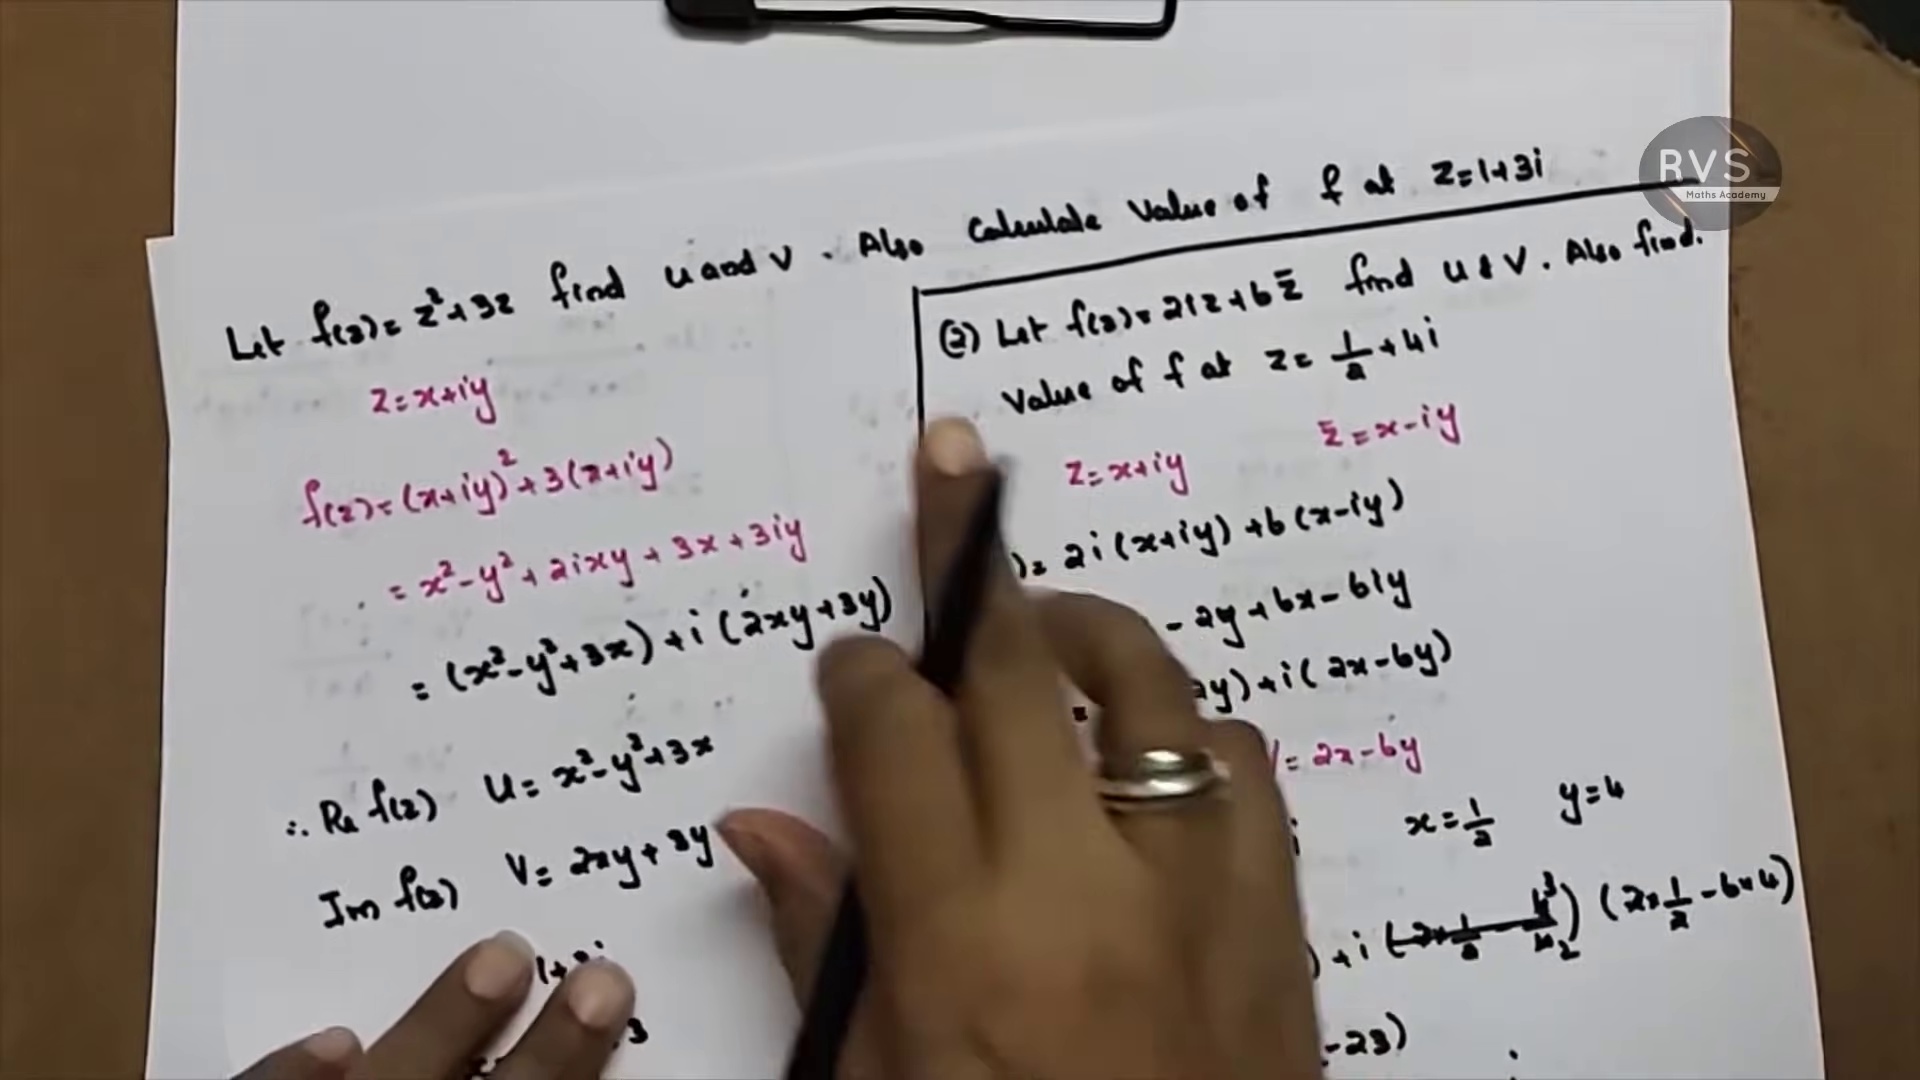 Let f(z) = z² + 3z find u and v. Also Calculate Value of f at z = 1+3i
z = x+iy
f(z) = (x+iy)² + 3(x+iy)
= x² - y² + 2ixy + 3x + 3iy
= (x² - y² + 3x) + i (2xy + 3y)
∴ Re f(z) u = x² - y² + 3x
Im f(z) V = 2xy + 3y
(2) Let f(z) = 2iz + 6z̄ find u & v. Also find.
Value of f at z = 1/2 + 4i
z = x+iy z̄ = x-iy
) = 2i (x+iy) + 6 (x-iy)
- 2y + 6x - 6iy
= 2y) + i ( 2x - 6y)
V = 2x - 6y
i x = 1/2 y = 4
) + i (2×1/2 - 6×4)
-23)
RVS
Maths Academy